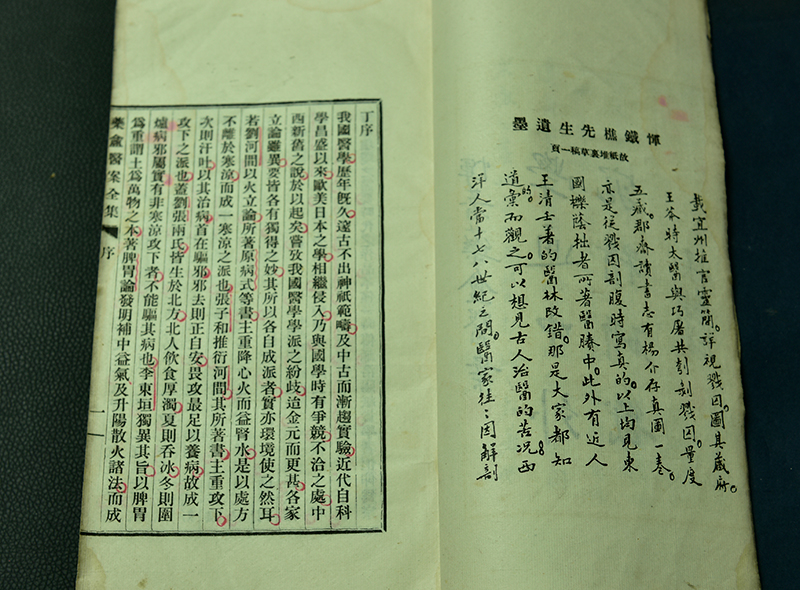 惲鐵樵先生遺墨
故紙堆裏草稿一頁
載宜州推官靈簡。詳視戮囚。圖其藏府。
王莽時太醫與巧屠共刳剝戮囚。量度
五藏。郡齋讀書志有楊介存真圖一卷。
亦是從戮囚剖腹時寫真的。以上均見東
國櫟蔭拙者所著醫賸中。此外有近人
王清任著的醫林改錯。那是大家都知
道的。彙而觀之。可以想見古人治醫的苦况。西
洋人當十七八世紀之間。醫家往々因解剖
丁序
我國醫學歷年旣久遠古不出神祇範疇及中古而漸趨實驗近代自科
學昌盛以來歐美日本之學相繼侵入乃與國學時有爭競不洽之處中
西新舊之說於以起矣嘗攷我國醫學學派之紛歧迨金元而更甚各家
立論雖異要皆各有獨得之妙其所以各自成派者實亦環境使之然耳
若劉河間以火立論所著原病式等書主重降心火而益腎水是以處方
不離於寒涼而成一寒涼之派也張子和推衍河間其所著書主重攻下
次則汗吐以其治病首在驅邪邪去則正自安畏攻最足以養病故成一
攻下之派也蓋劉張兩氏皆生於北方北人飲食厚濁夏則吞冰冬則圍
爐病邪屬實有非寒涼攻下者不能驅其病也李東垣獨異其旨以脾胃
爲重謂土爲萬物之本著脾胃論發明補中益氣及升陽散火諸法而成
藥盦醫案全集 序 一